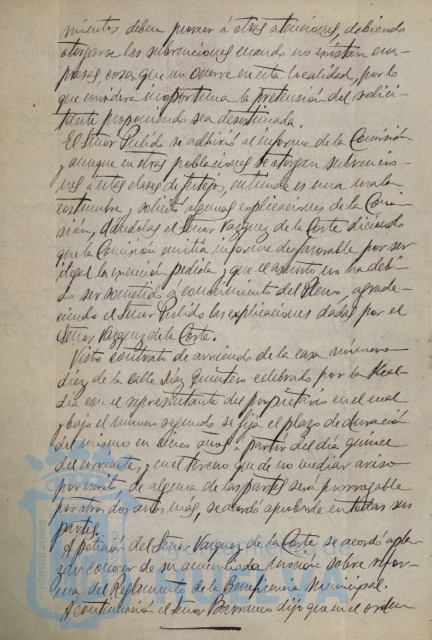 mientos deben proveer á otras atenciones, debiendo
otorgarse las subvenciones cuando no existan em-
presas cosa que no ocurre en esta localidad, por lo
que considera inoportuna la pretensión del solici-
tante proponiendo sea desestimada.
El Señor Pulido se adhirió al informe de la Comisión
y aunque en otras poblaciones se otorgan subvencio-
nes a estas clases de festejos, entiende es una mala
costumbre, y solicitó algunas explicaciones de la Comi-
sión, dándolas el Señor Vazquez de la Corte diciendo
que la Comisión emitía informe desfavorable por ser
ilegal la exención pedida y que el asunto no ha debi-
do ser sometido á conocimiento del Pleno, agrade-
ciendo el Señor Pulido las explicaciones dadas por el
Señor Vazquez de la Corte.
Visto contrato de arriendo de la casa número
diez de la calle Díaz Quintero celebrado por la Alcal-
día con el representante del propietario en el cual
y bajo el número segundo se fija el plazo de duración
del mismo en años a partir del día quince
del corriente, y en el tercero que de no mediar aviso
por escrito de alguna de las partes será prorrogable
por otros dos años más, se acordó aprobarlo en todas sus
partes.
A petición del Señor Vazquez de la Corte se acordó apla-
zar conocer de su anunciada moción sobre refor-
ma del Reglamento de la Beneficencia Municipal.
A continuación el Señor dijo que en el orden